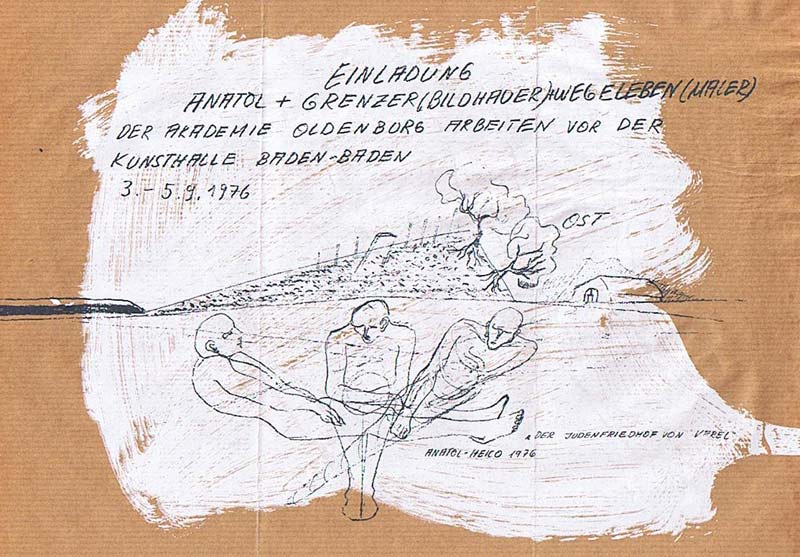 EINLADUNG
ANATOL + GRENZER (BILDHAUER) + WEGELEBEN (MALER)
DER AKADEMIE OLDENBURG ARBEITEN VOR DER
KUNSTHALLE BADEN-BADEN
3.-5.9.1976
OST
DER JUDENFRIEDHOF VON
ANATOL-HEICO 1976